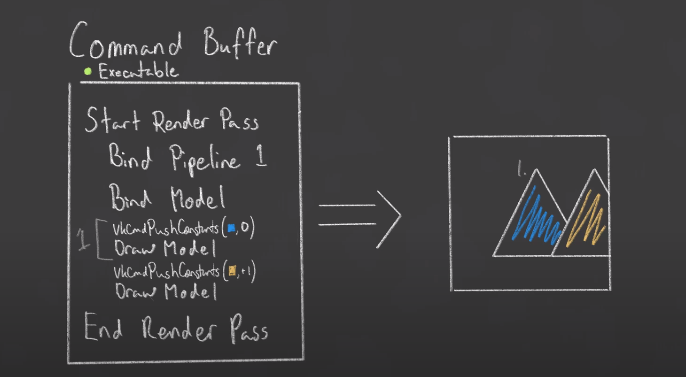 Command Buffer
Executable
Start Render Pass
Bind Pipeline 1
Bind Model
vkCmdPushConstants(■, 0)
Draw Model
vkCmdPushConstants(■, +1)
Draw Model
End Render Pass
1
1.